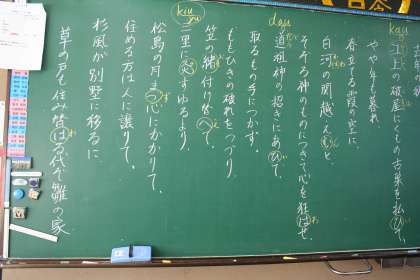 江上の破屋にくもの古巣を払ひて、
やや年も暮れ、
春立てる霞の空に、
白河の関越えむと、
そぞろ神のものにつきて心を狂はせ、
道祖神の招きにあひて、
取るもの手につかず、
ももひきの破れをつづり、
笠の緒付け替へて、
三里に灸すゆるより、
松島の月まづ心にかかりて、
住める方は人に譲りて、
杉風が別墅に移るに、
草の戸も住み替はる代ぞ雛の家